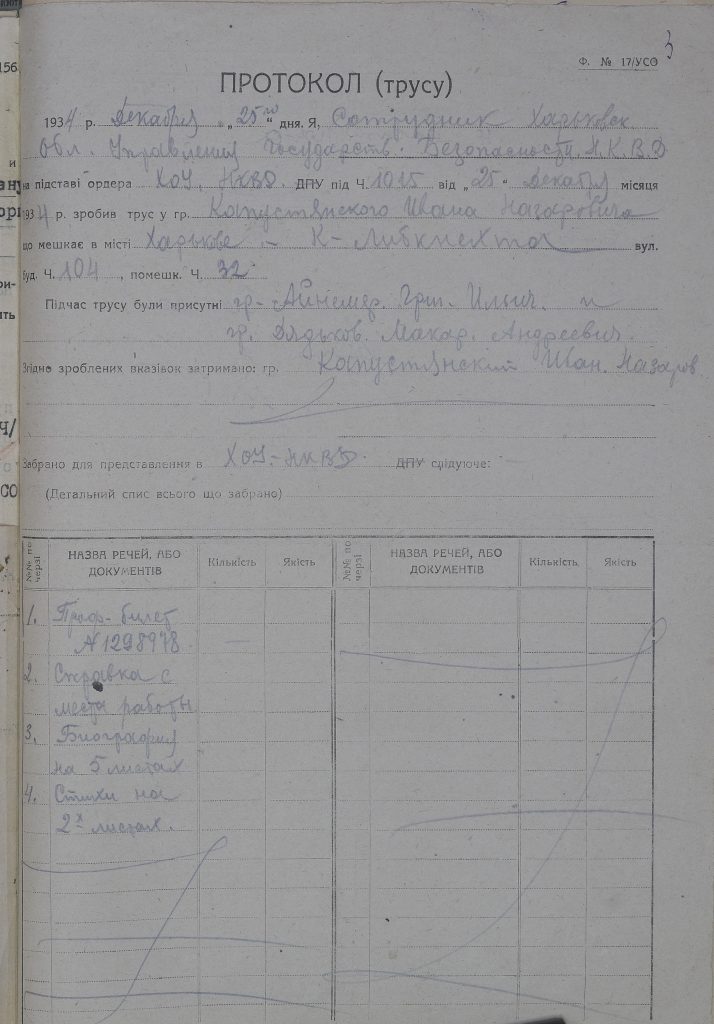 3
Ф. № 17/УСО
ПРОТОКОЛ (трусу)
1934 р. Декабря „25го“ дня. Я, Сотрудник Харьковск.
Обл. Управления Государств. Безопасности Н.К.В.Д
на підставі ордера ХОУ, НКВД. ДПУ під Ч. 1015 від „25“ Декабря місяця
1934 р. зробив трус у гр. Капустянского Ивана Назаровича
що мешкає в місті Харькове – К-Либкнехта вул.
буд. Ч. 104, помешк. Ч. 32
Підчас трусу були присутні гр- Григ. Ильич. и
гр. Дядьков. Макар. Андреевич.
Згідно зроблених вказівок затримано: гр. Капустянский Иван. Назаров.
Забрано для представлення в ХОУ-НКВД. ДПУ слідуюче:
(Детальний спис всього що забрано)
№№ по черзі НАЗВА РЕЧЕЙ, АБО ДОКУМЕНТІВ Кількість Якість №№ по черзі НАЗВА РЕЧЕЙ, АБО ДОКУМЕНТІВ Кількість Якість
1. Проф-билет
N 1298978 —
2. Справка с
места работы
3. Биография
на 5 листах
4. Стихи на
2х листах.
156
и
ану
орг
ри-
ить
Ч/
СО